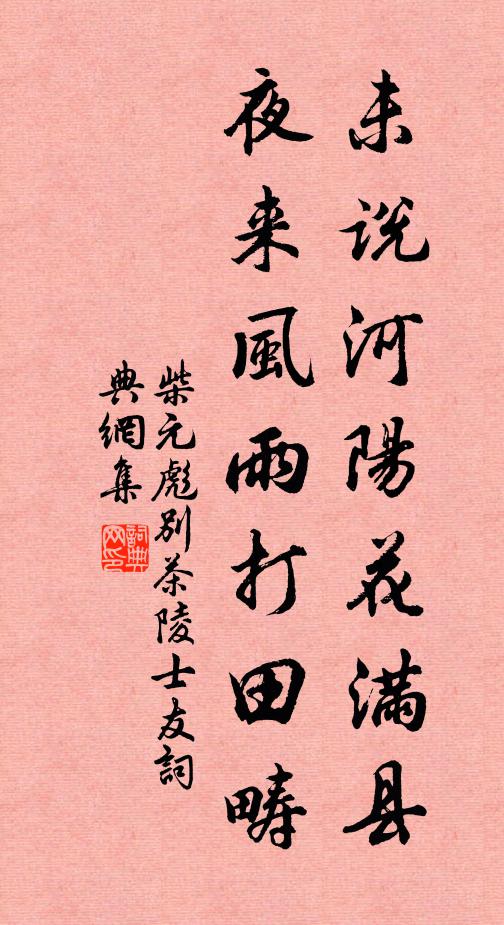 未説河陽花滿县
夜来風雨打田畴
柴元彪别茶陵士友詞
典網集
詞典
网印